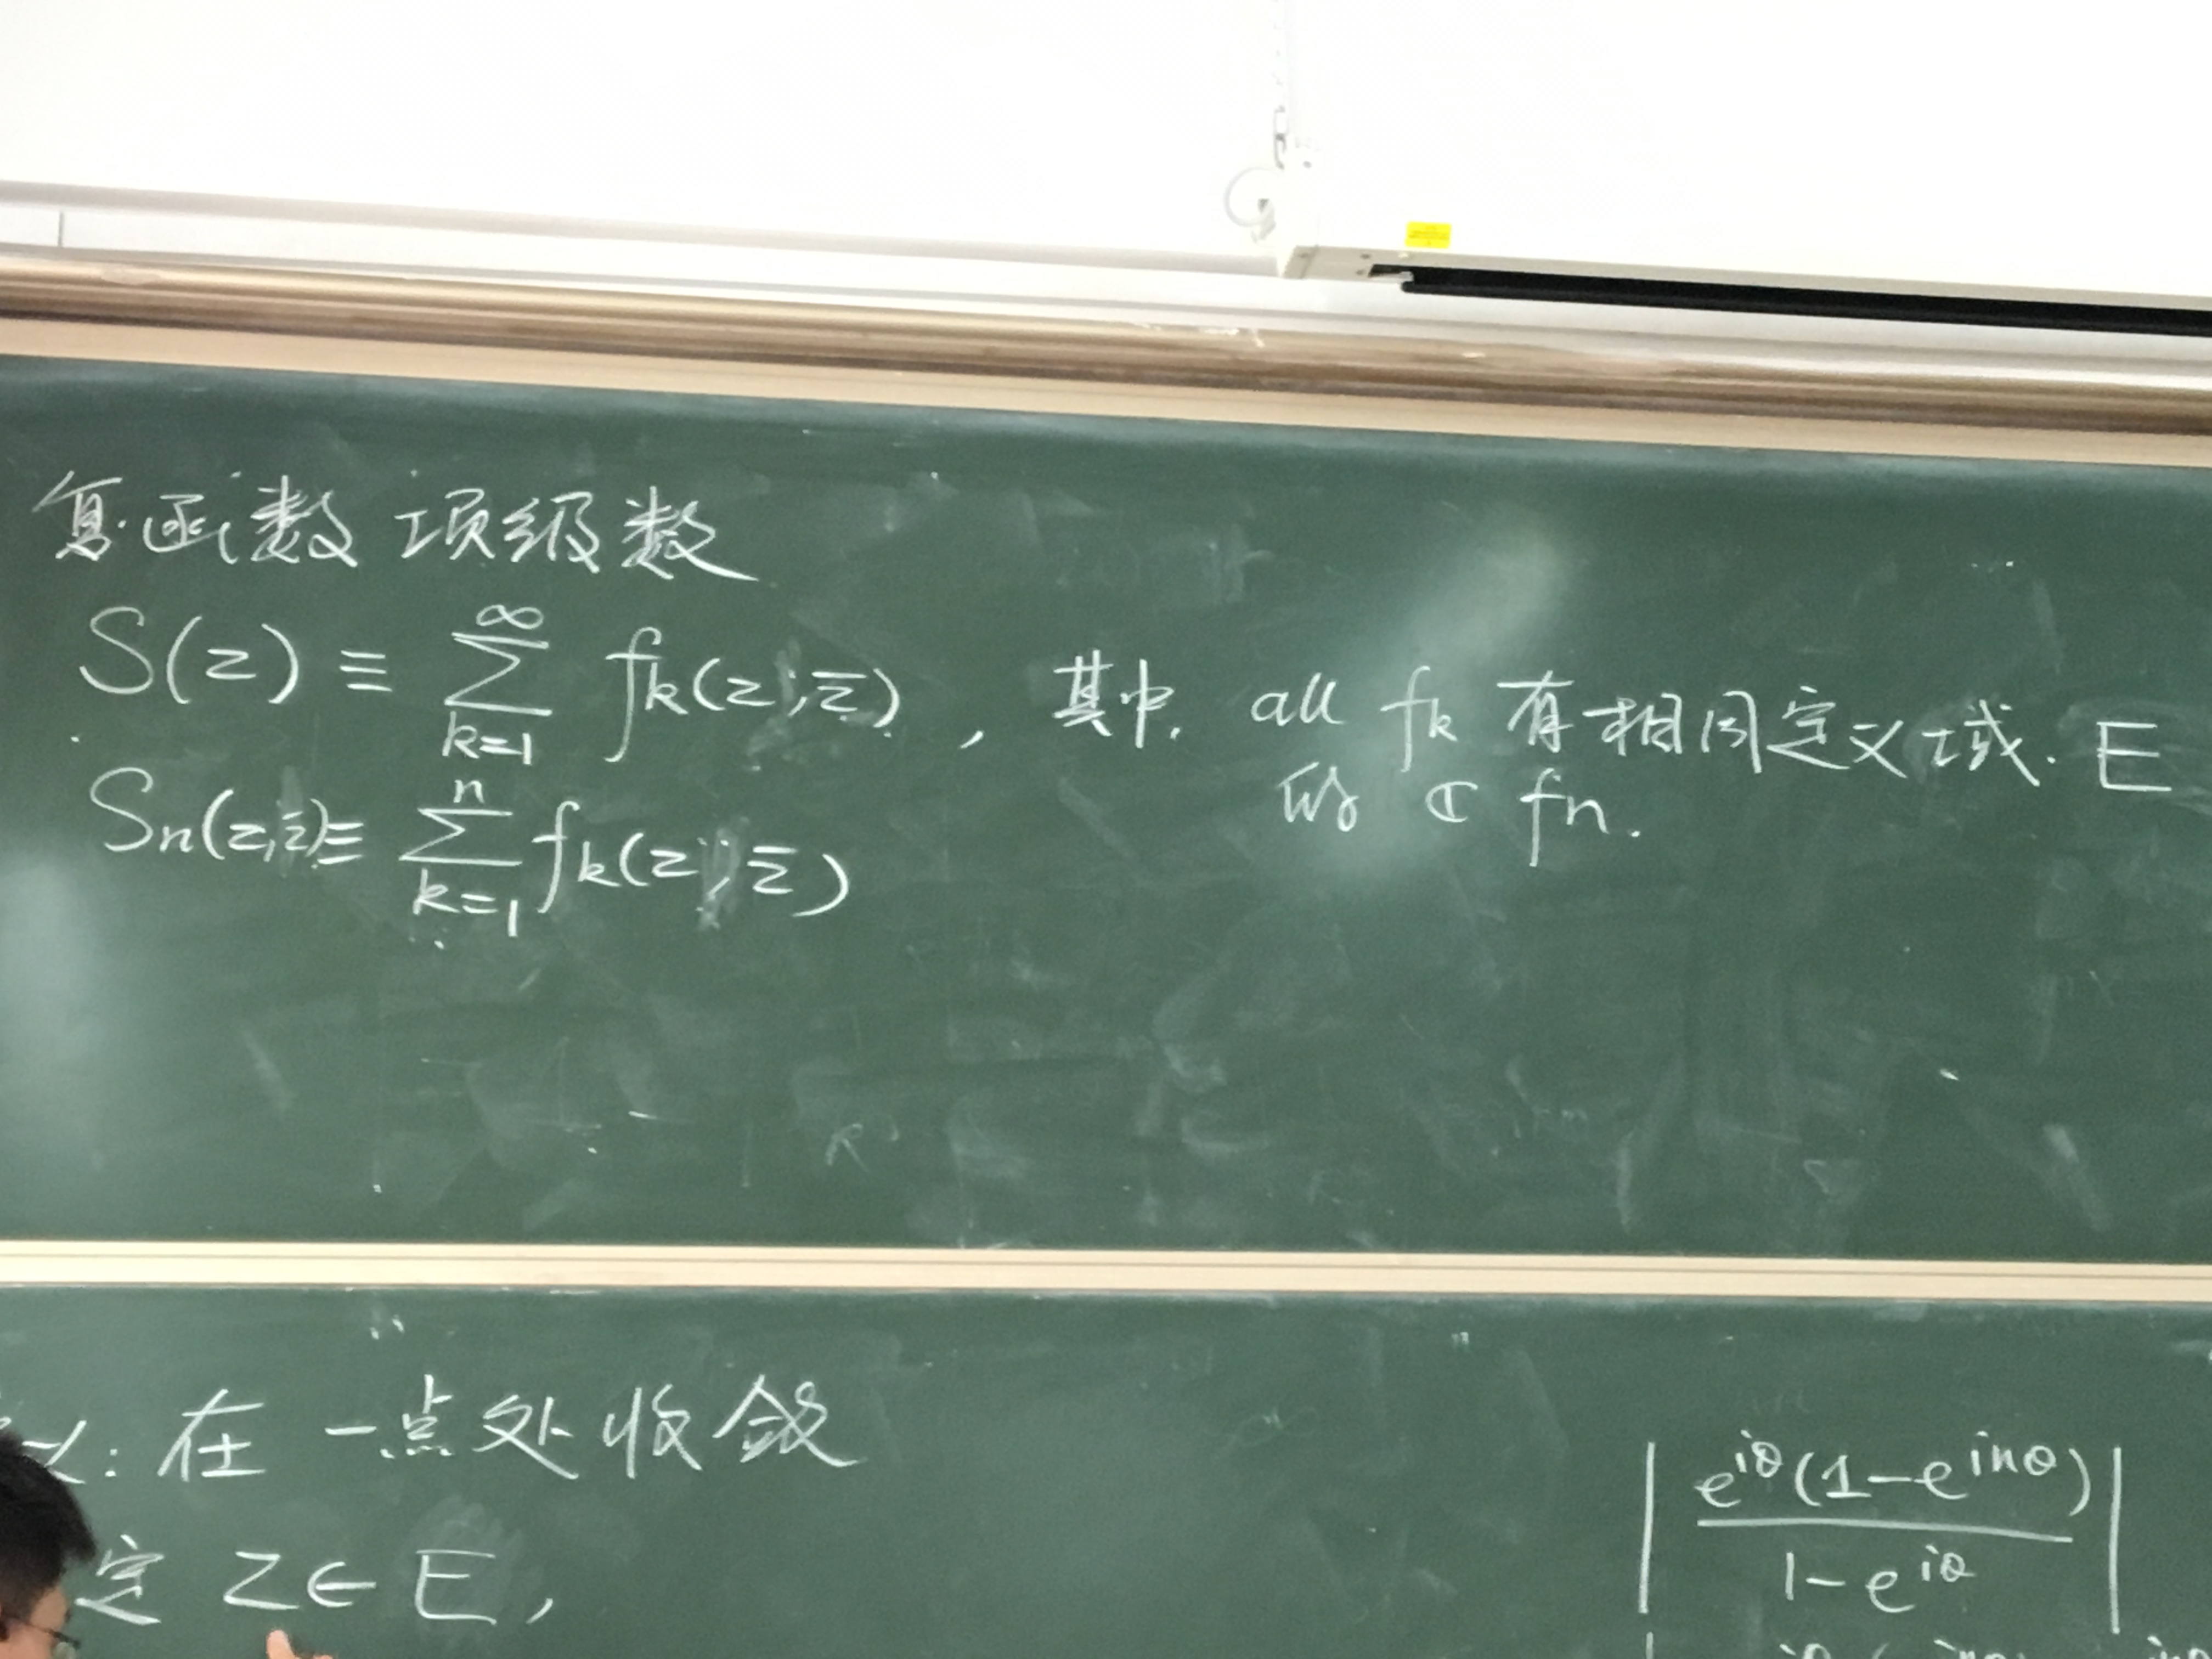 复函数项级数
S(z) ≡ ∑_{k=1}^{∞} f_k(z, z̄), 其中, all f_k 有相同定义域 E
的 ℂ fn.
S_n(z, z̄) ≡ ∑_{k=1}^{n} f_k(z, z̄)
义: 在一点处收敛
定 z∈E,
| e^{iθ}(1-e^{inθ}) / 1-e^{iθ} |